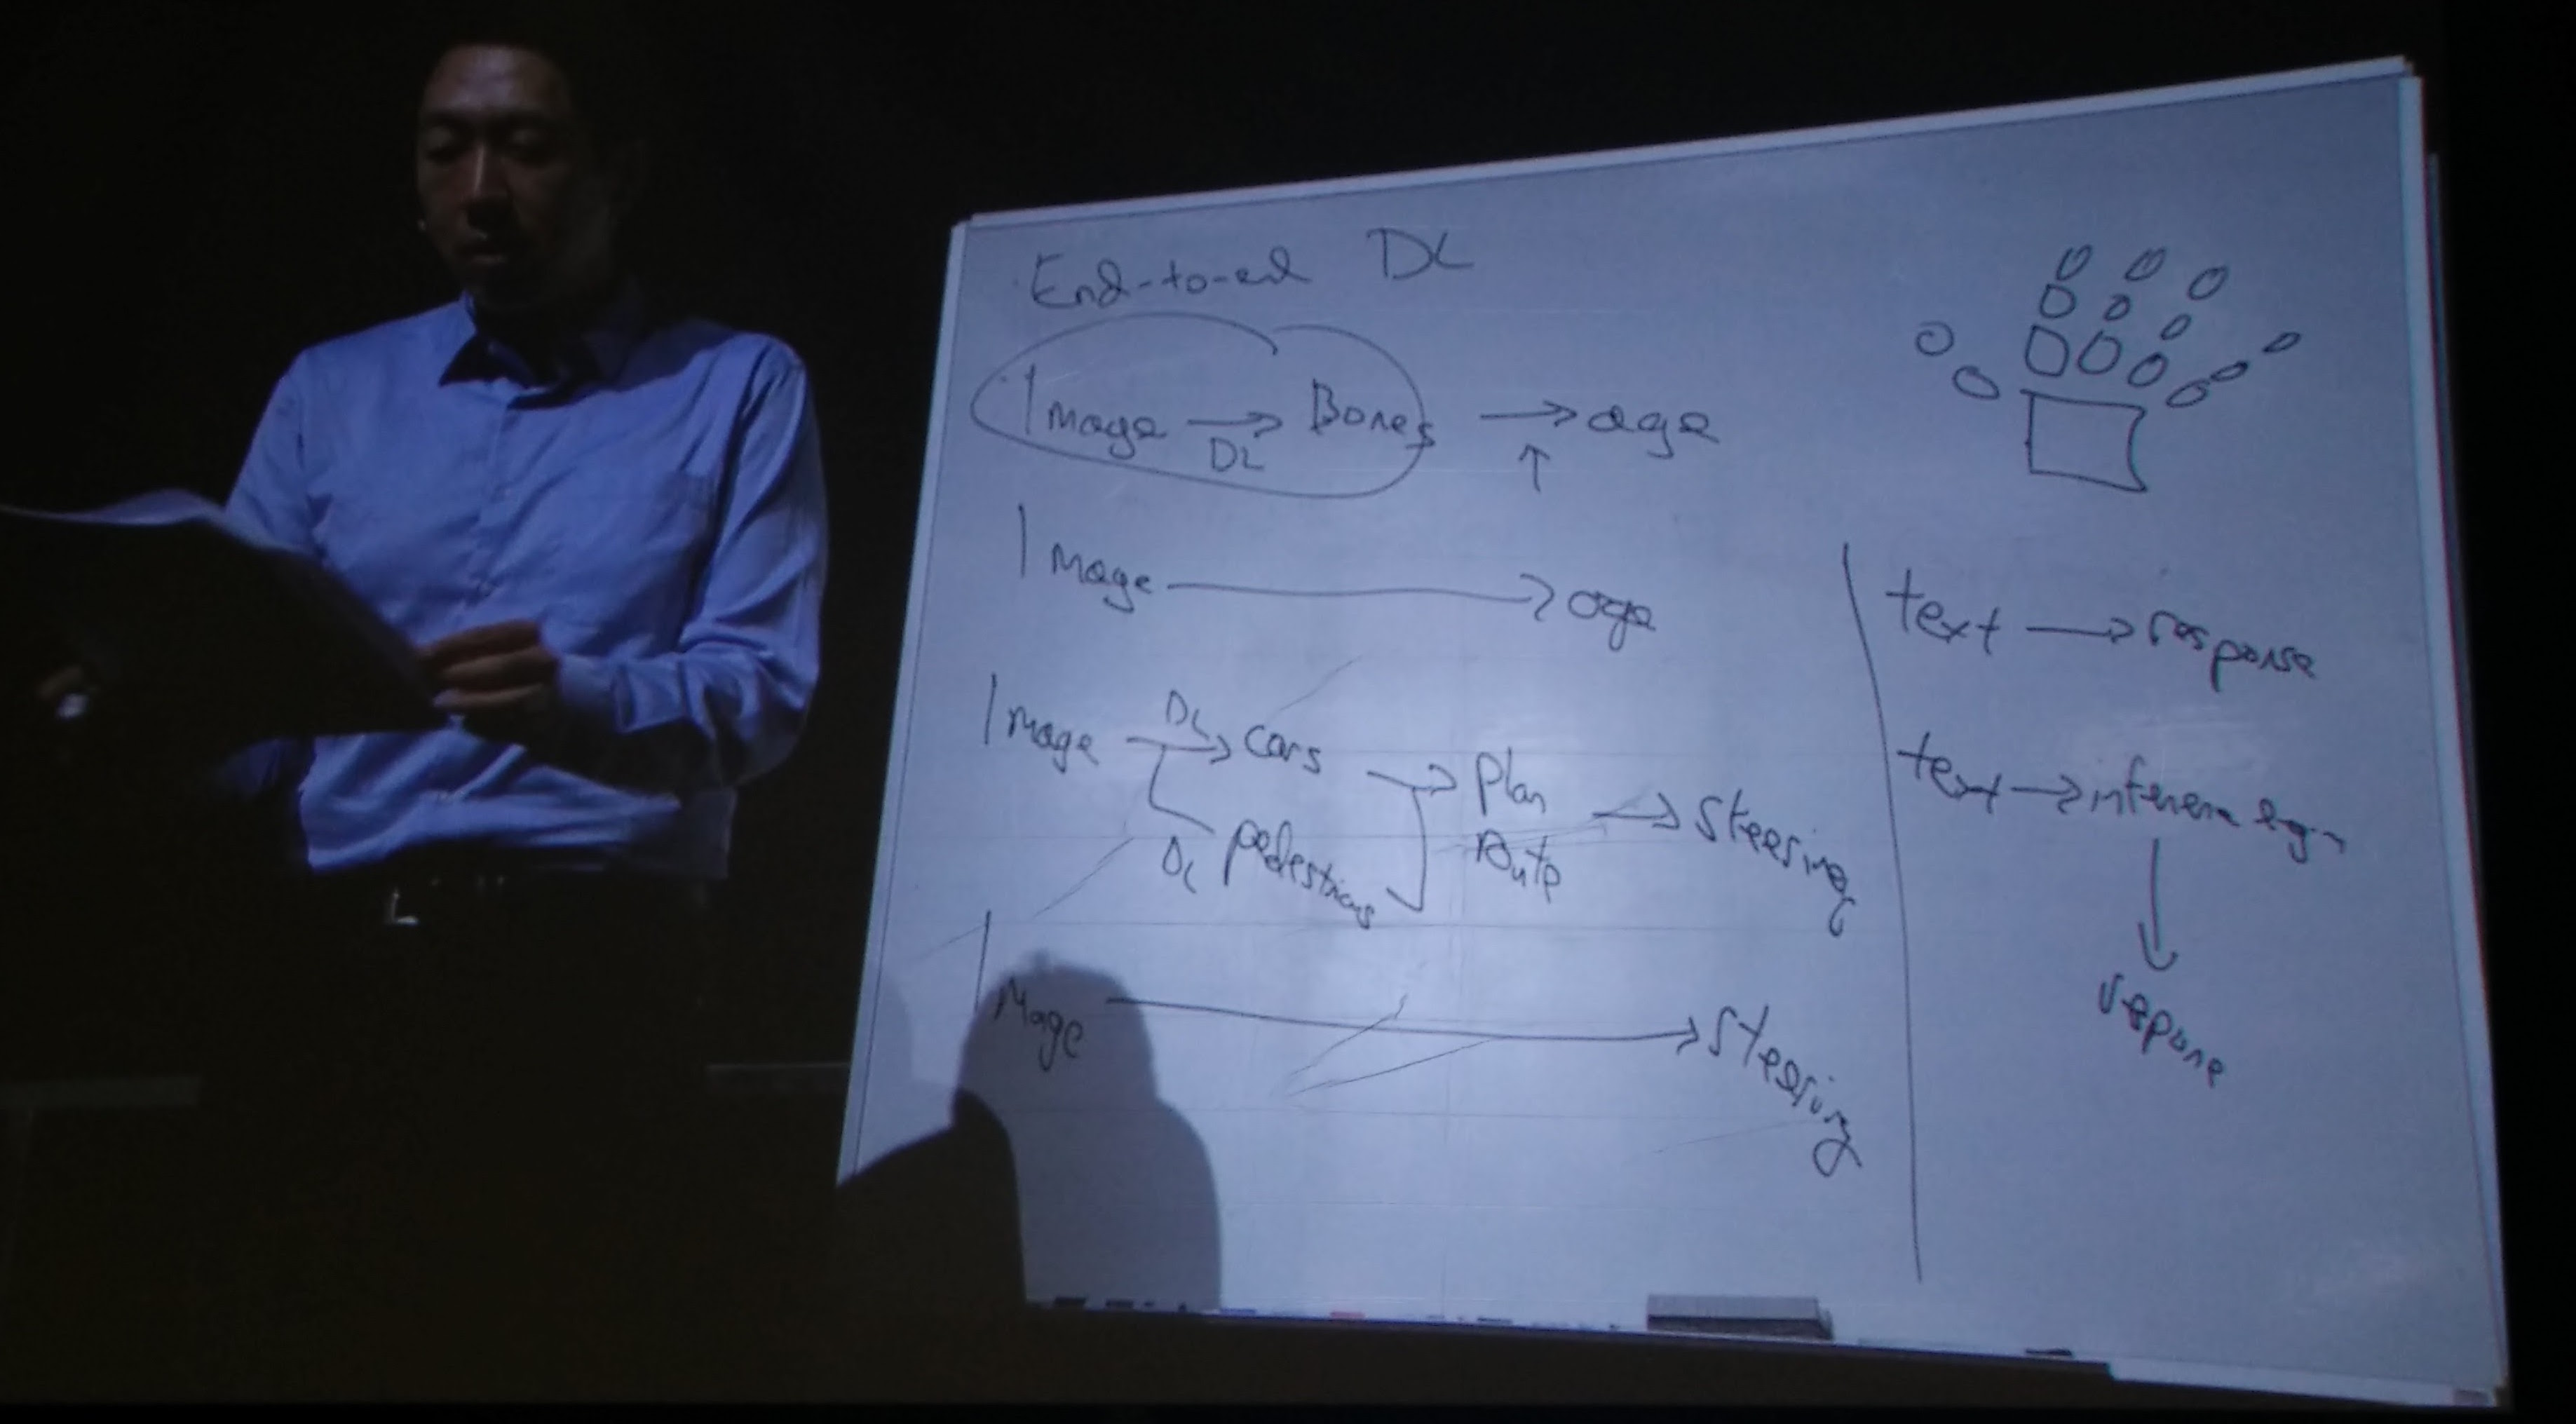 End-to-end DL
Image → Bones → age
DL ↑
Image → age
Image DL → cars → plan route → steering
DL pedestrians
Image → steering
text → response
text → inference
response